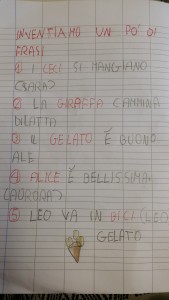 INVENTIAMO UN PO' DI
FRASI
① I CECI SI MANGIANO
② LA GIRAFFA CAMMINA
③ IL GELATO È BUONO
ALE
④ ALICE È BELLISSIMA
⑤ LEO VA IN BICI (LEO)
GELATO